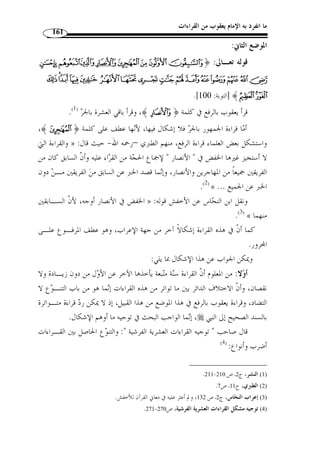 ما انفرد به الإمام يعقوب من القراءات
161
الموضع الثاني:
قوله تعـــالى: ﴿ وَالسَّبِقُونَ الْأَوَّلُونَ مِنَ الْمُهَجِرِينَ وَالْأَنصَارِ وَالَّذِينَ اتَّبَعُوهُم بِإِحْسَنٍ
رَّضِيَ اللَّهُ عَنْهُمْ وَرَضُوا عَنْهُ وَأَعَدَّ لَهُمْ جَنَّتٍ تَجْرِي تَحْتَهَا الْأَنْهَرُ خَلِدِينَ فِيهَا أَبَدًا ذَلِكَ
الْفَوْزُ الْعَظِيمُ ﴾ [التوبة: 100].
قرأ يعقوب بالرفع في كلمة ﴿ وَالْأَنصَارِ ﴾، وقرأ باقي العشرة بالجرّ (1).
أمّا قراءة الجمهور بالجرّ فلا إشكال فيها، لأنها عطف على كلمة ﴿ الْمُهَجِرِينَ ﴾،
واستشكل بعض العلماء قراءة الرفع، منهم الطبري –رحمه الله– حيث قال: « والقراءة التي
لا أستجيز غيرها الخفض في " الأنصار " لإجماع الحجّة من القرّاء عليه وأنّ السابق كان من
الفريقين جميعاً من المهاجرين والأنصار، وإنما قصد الخبر عن السابق من الفريقين دون
الخبر عن الجميع ... » (2).
ونقل ابن النحّاس عن الأخفش قوله: « الخفض في الأنصار أوجه، لأن الســـابقين
منهما » (3).
كما أنّ في هذه القراءة إشكالاً آخر من جهة الإعراب، وهو عطف المرفـــوع علـــى
المجرور.
ويمكن الجواب عن هذا الإشكال بما يلي:
أوّلاً: من المعلوم أنّ القراءة سنّة متّبعة يأخذها الآخر عن الأوّل من دون زيـــادة ولا
نقصان، وأنّ الاختلاف الدائر بين ما تواتر من هذه القراءات إنّما هو من باب التنـــوّع لا
التضاد، وقراءة يعقوب بالرفع في هذا الموضع من هذا القبيل، إذ لا يمكن ردّ قراءة متـــواترة
بالسند الصحيح إلى النبي ﷺ، إنّما الواجب البحث في توجيه ما أوهم الإشكال.
قال صاحب " توجيه القراءات العشرية الفرشية ": والتنوّع الحاصل بين القـــراءات
أضرب وأنواع: (4)
(1) النشر، ج2، ص 210-211.
(2) الطبري، ج11، ص7.
(3) إعراب النحّاس، ج2، ص 132، ولم أعثر عليه في معاني القرآن للأخفش.
(4) توجيه مشكل القراءات العشرية الفرشية، ص270-271.